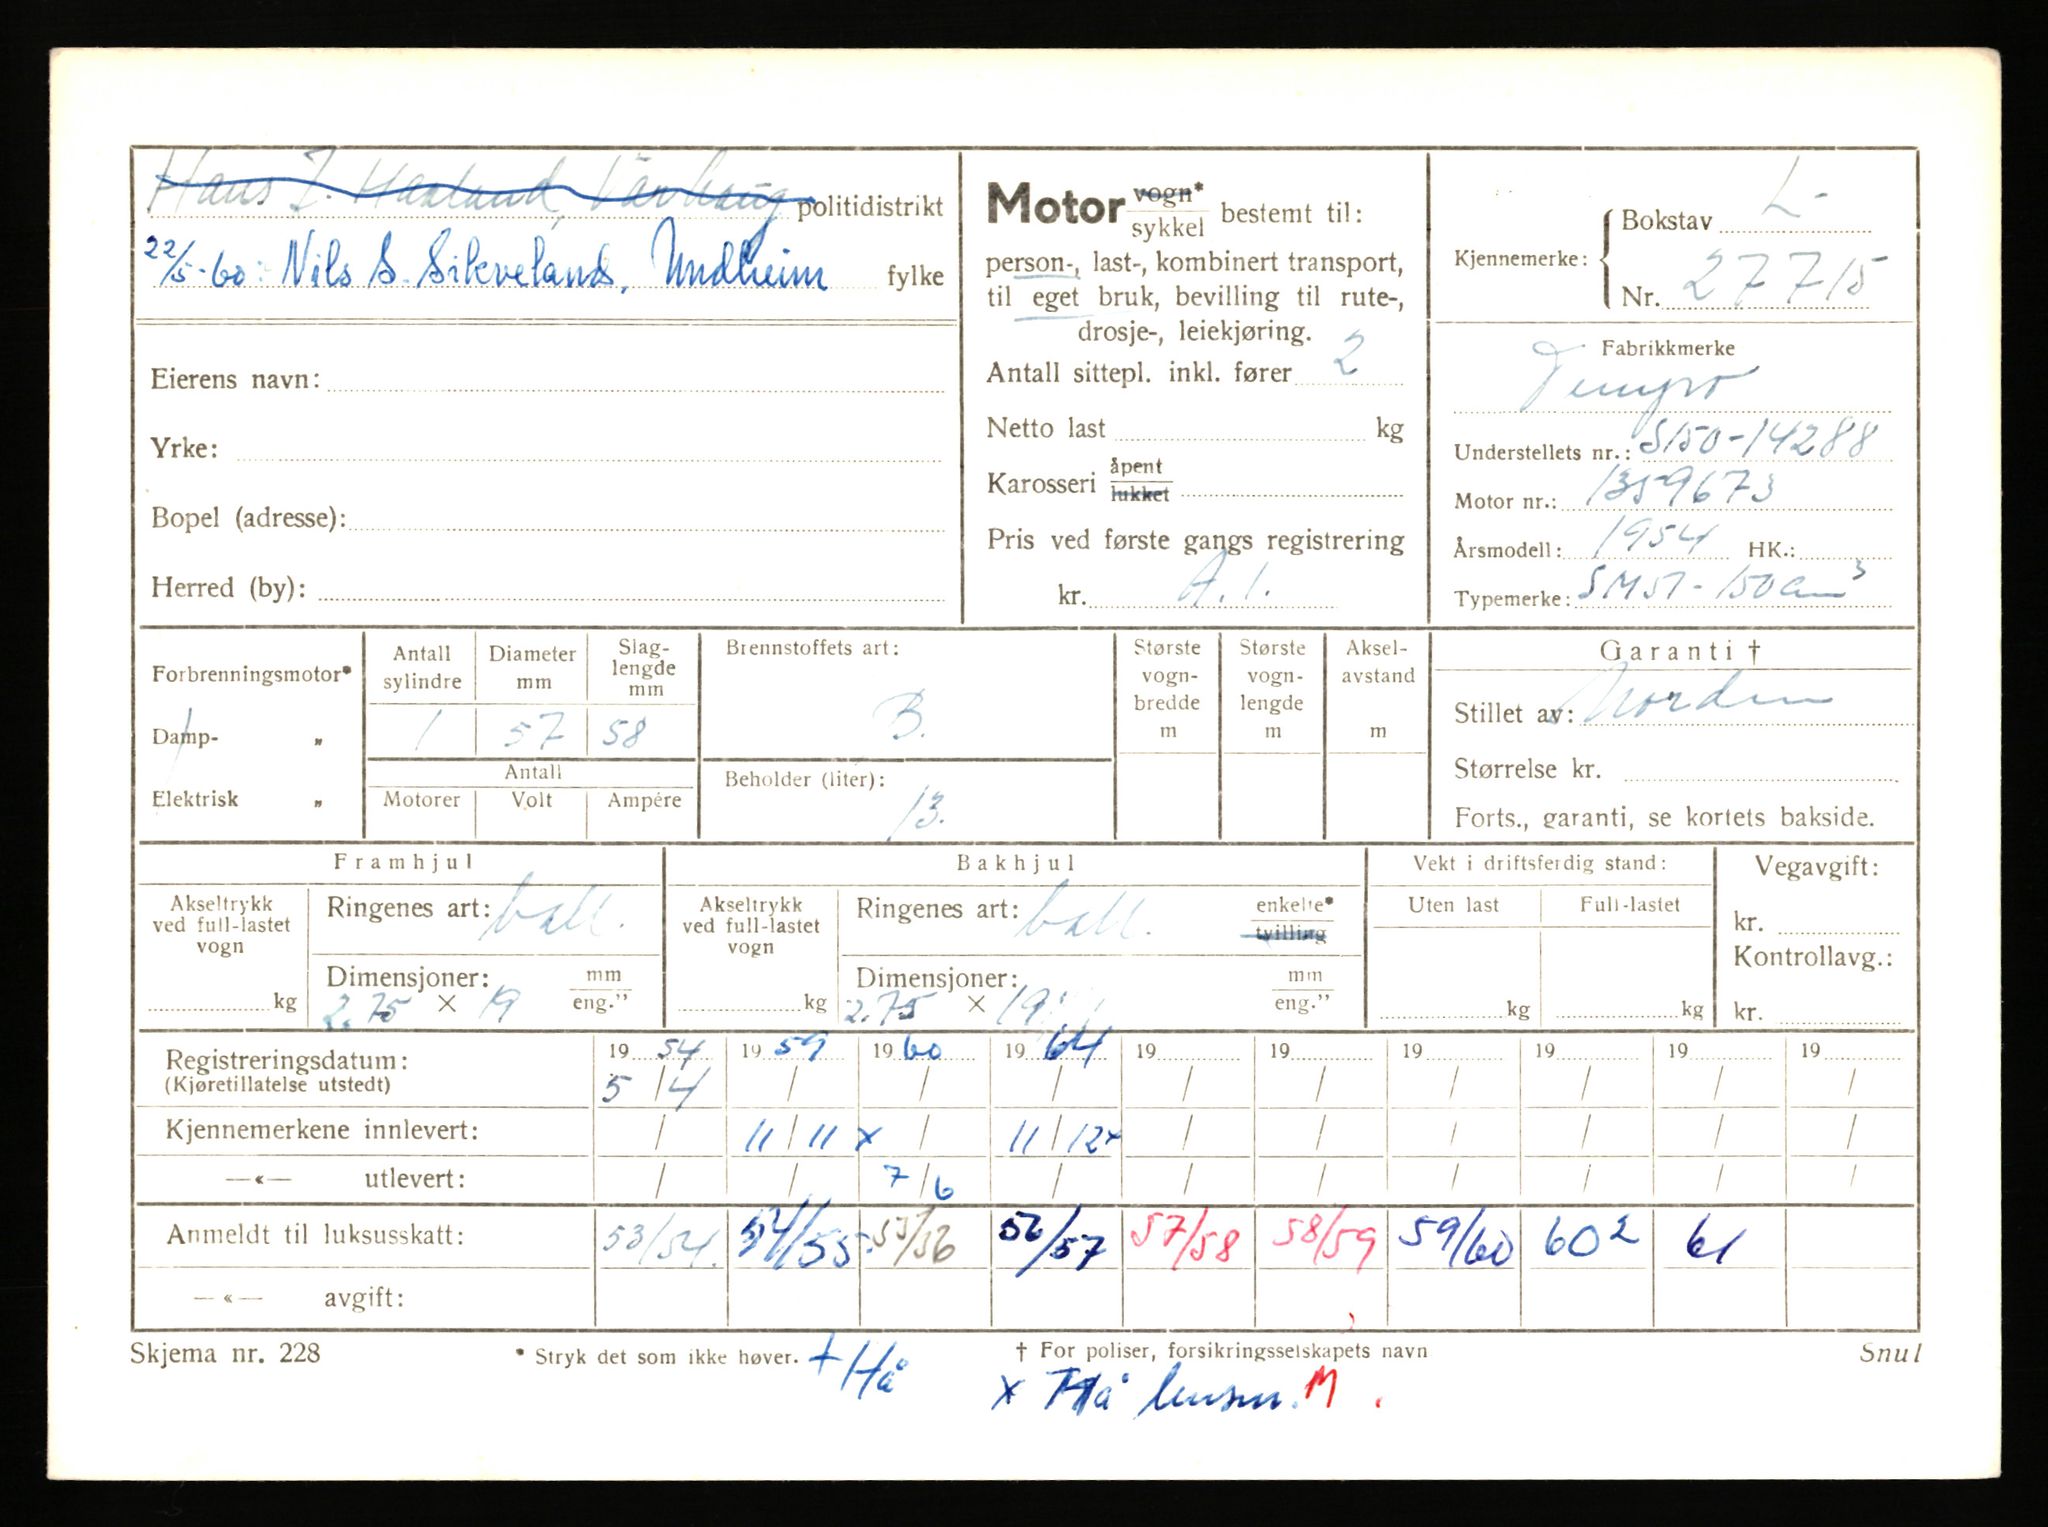 Hans J. Haaland, Varhaug politidistrikt
22/5-60: Nils S. Sikveland, Undheim fylke
Eierens navn:
Yrke:
Bopel (adresse):
Herred (by):
Motor vogn* sykkel bestemt til:
person-, last-, kombinert transport,
til eget bruk, bevilling til rute-,
drosje-, leiekjøring.
Antall sittepl. inkl. fører 2
Netto last kg
Karosseri åpent lukket
Pris ved første gangs registrering
kr. A. 1.
Kjennemerke: Bokstav L-
Nr. 27715
Fabrikkmerke
Tempo
Understellets nr.: S150-14288
Motor nr.: 1359673
Årsmodell: 1954 HK.:
Typemerke: SM51-150cm3
Forbrenningsmotor*
Damp- „
Elektrisk „
Antall sylindre Diameter mm Slaglengde mm
1 57 58
Antall
Motorer Volt Ampére
Brennstoffets art:
B.
Beholder (liter):
13.
Største vogn-bredde m
Største vogn-lengde m
Aksel-avstand m
Garanti †
Stillet av: Norden
Størrelse kr.
Forts., garanti, se kortets bakside.
Framhjul
Akseltrykk ved full-lastet vogn kg
Ringenes art: ball.
Dimensjoner: mm eng.”
2.75 × 19
Bakhjul
Akseltrykk ved full-lastet vogn kg
Ringenes art: ball. enkelte* tvilling
Dimensjoner: mm eng.”
2.75 × 19
Vekt i driftsferdig stand:
Uten last Full-lastet
kg kg
Vegavgift:
kr.
Kontrollavg.:
kr.
Registreringsdatum: 1954 1959 1960 1964 19 19 19 19 19 19
(Kjøretillatelse utstedt) 5/4 / / / / / / / / /
Kjennemerkene innlevert: / 11/11 x / 11/12+ / / / / / /
—«— utlevert: / / 7/6 / / / / / / /
Anmeldt til luksusskatt: 53/54. 54/55 55/56 56/57 57/58 58/59 59/60 602 61
—«— avgift:
Skjema nr. 228 * Stryk det som ikke høver. † For poliser, forsikringsselskapets navn Snul
+ Hå x Hå lensm. M.